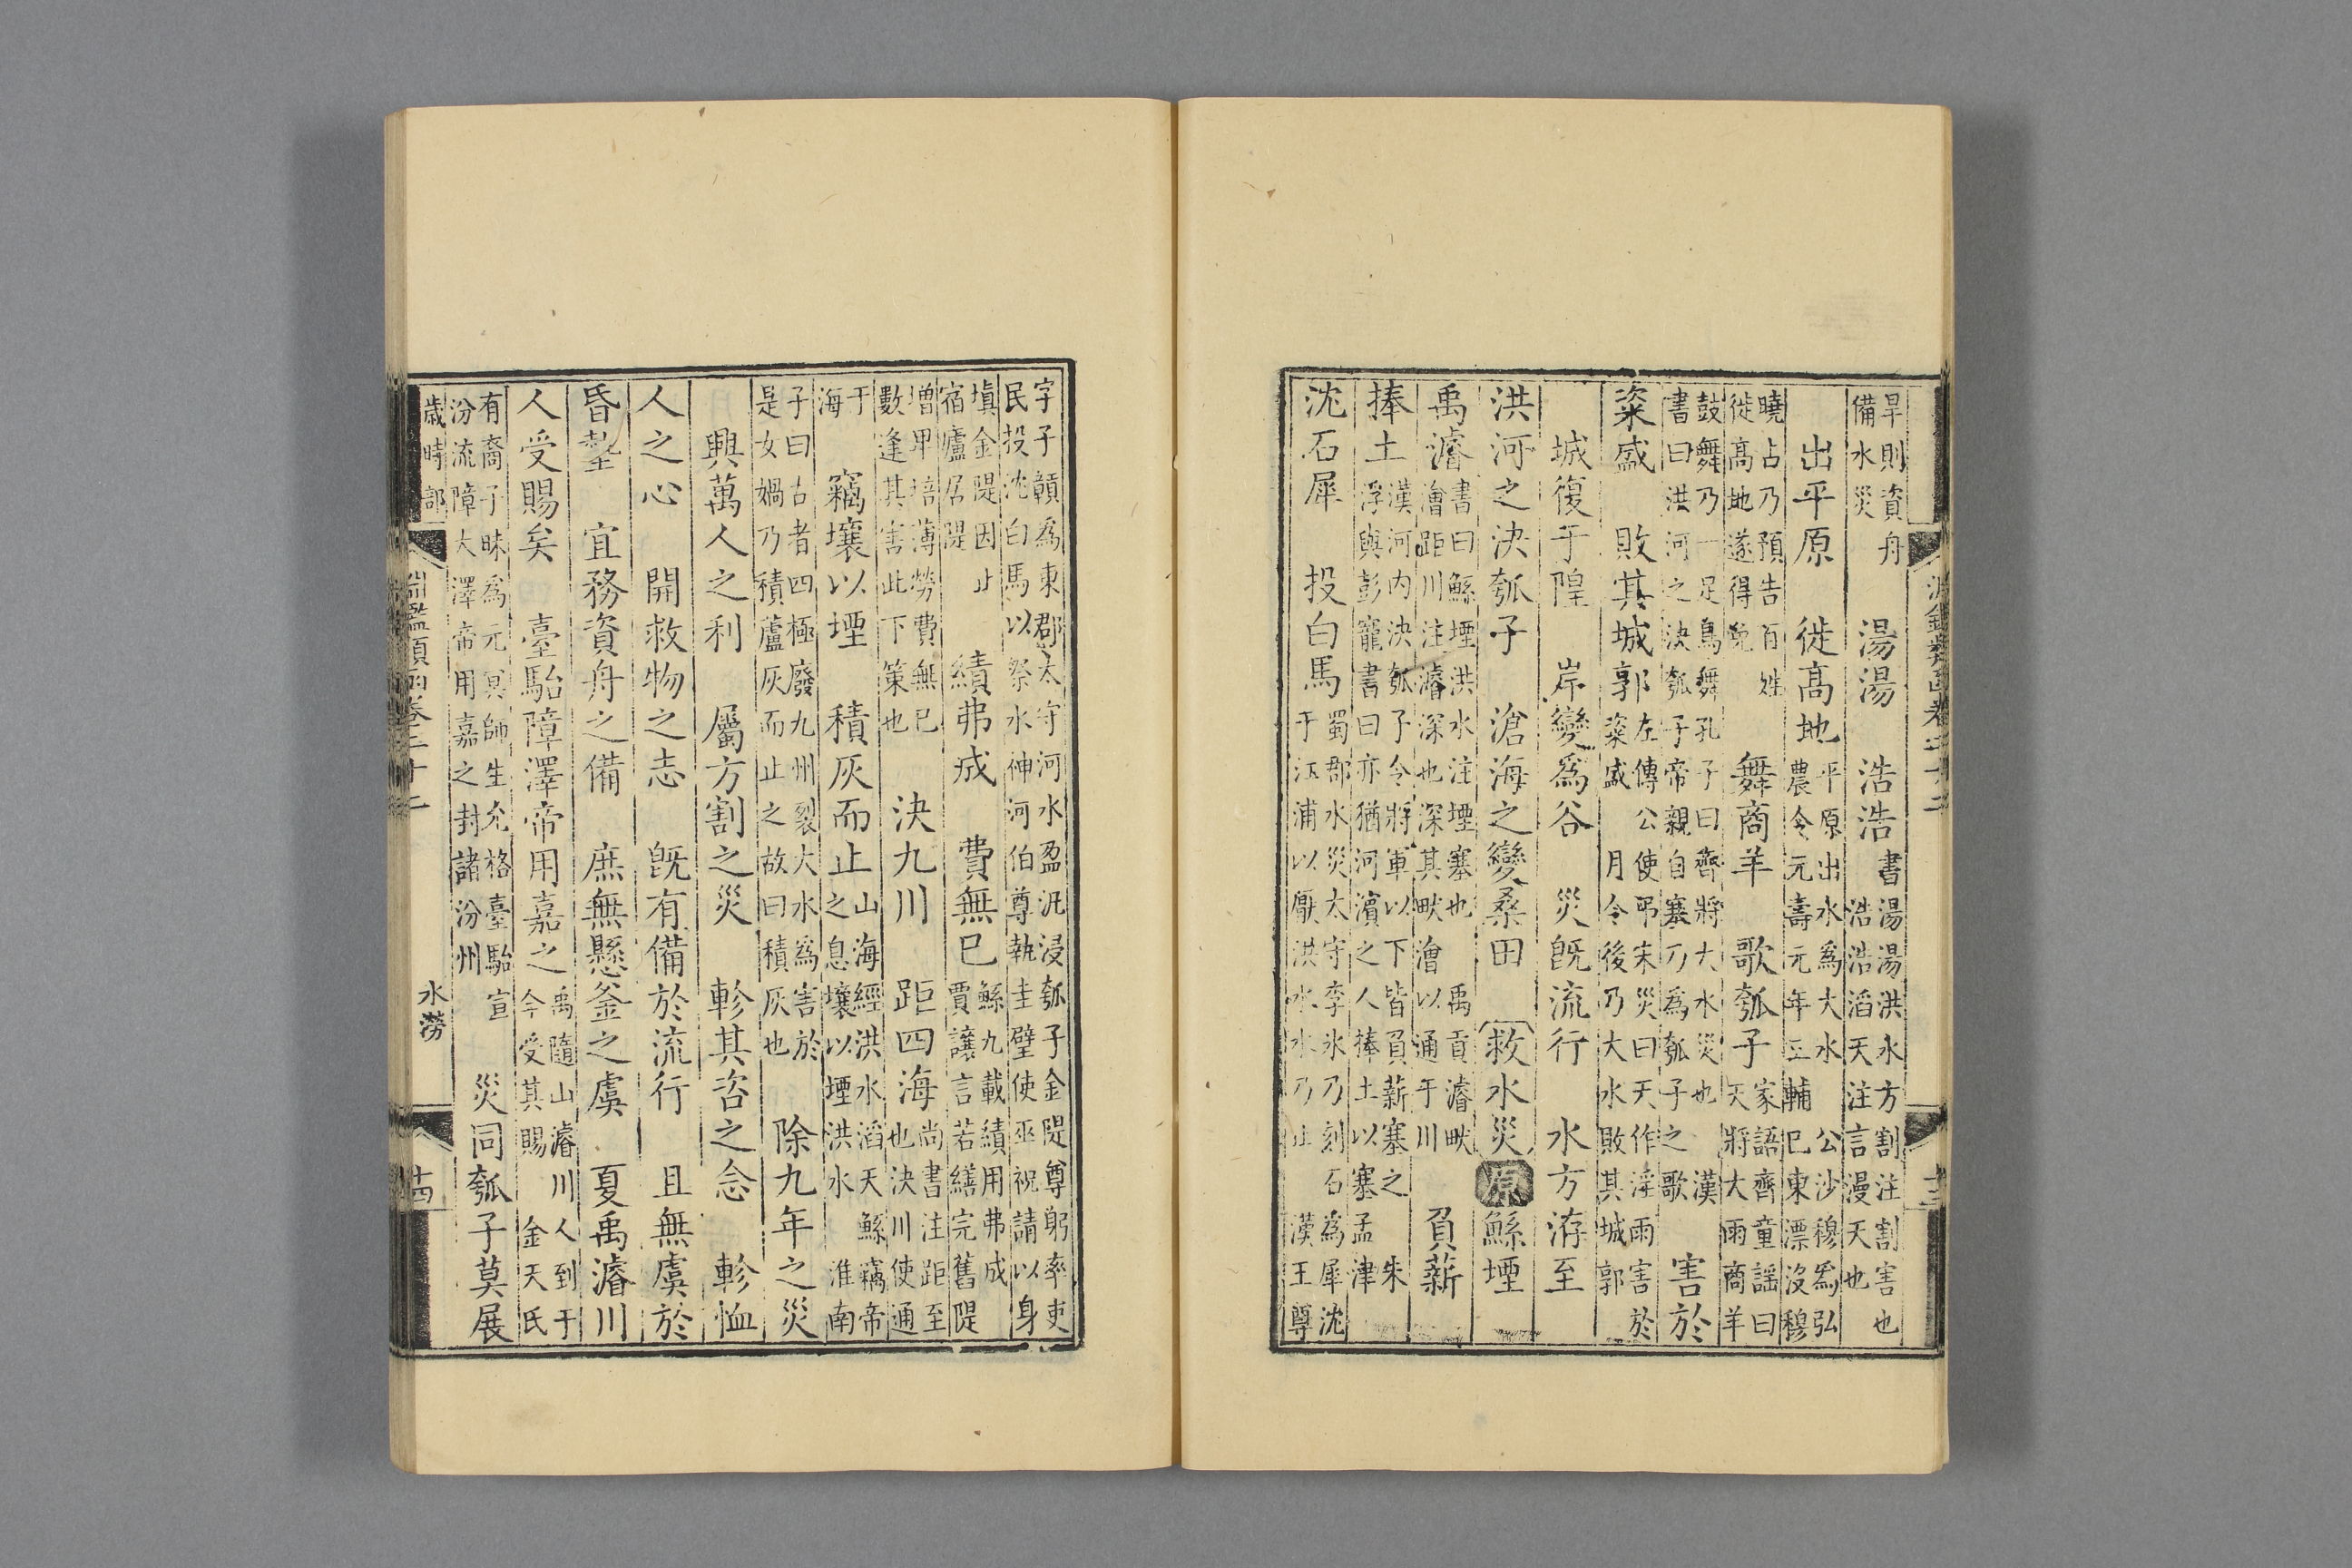 淵鑑類函卷二十二 十三
旱則資舟備水災 湯湯 浩浩 書湯湯洪水方割注割害也浩浩滔天注言漫天也
出平原 徙高地 平原出水為大水 公沙穆為弘農令元壽元年三輔巳東漂沒穆
曉占乃預告百姓徙高地遂得免 舞商羊 歌瓠子 家語齊童謡曰天將大雨商羊
鼓舞乃一足鳥舞孔子曰齊將大水災也 漢書曰洪河之決瓠子帝親自塞乃為瓠子之歌 害於
粢盛 敗其城郭 左傳公使弔宋災曰天作淫雨害於粢盛 月令後乃大水敗其城郭
城復于隍 岸變為谷 災既流行 水方洊至
洪河之決瓠子 滄海之變桑田 救水災 原 鯀堙
禹濬 書曰鯀堙洪水注堙塞也 禹貢濬畎澮距川注濬深也深其畎澮以通于川 負薪
捧土 漢河内決瓠子令將軍以下皆負薪塞之 朱浮與彭寵書曰亦猶河濱之人捧土以塞孟津
沈石犀 投白馬 蜀郡水災太守李冰乃刻石為犀沈于江浦以厭洪水水乃止 漢王尊
字子贛為東郡太守河水盈汎浸瓠子金隄尊躬率吏民投沈白馬以祭水神河伯尊執圭璧使巫祝請以身
填金隄因止宿廬居隄 績弗成 費無巳 鯀九載績用弗成 賈讓言若繕完舊隄
增甲培薄勞費無巳數逢其害此下策也 決九川 距四海 尚書注距至也決川使通
于海 竊壤以堙 積灰而止 山海經洪水滔天鯀竊帝之息壤以堙洪水 淮南
子曰古者四極廢九州裂大水為害於是女媧乃積蘆灰而止之故曰積灰也 除九年之災
興萬人之利 屬方割之災 軫其咨之念 軫恤
人之心 開救物之志 既有備於流行 且無虞於
昏墊 宜務資舟之備 庶無懸釜之虞 夏禹濬川
人受賜矣 臺駘障澤帝用嘉之 禹隨山濬川人到于今受其賜 金天氏
有裔子昧為元冥師生允格臺駘宣汾流障大澤帝用嘉之封諸汾州 災同瓠子莫展
歲時部 水澇
淵鑑類函卷二十二 十四